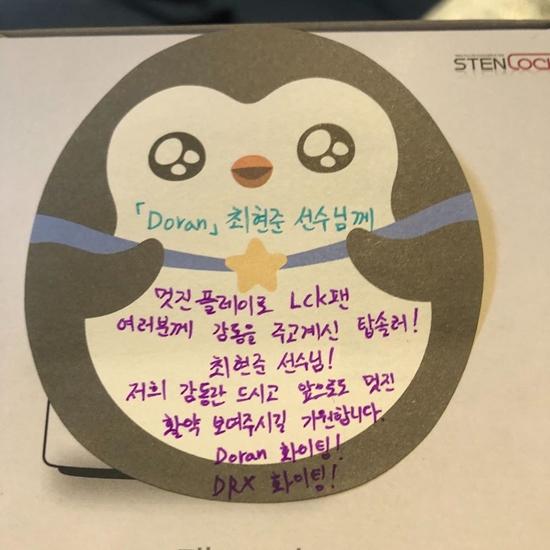 STENLOCK
「Doran」 최현준 선수님께
멋진 플레이로 Lck팬
여러분께 감동을 주고계신 탑솔러!
최현준 선수님!
저희 감동란 드시고 앞으로도 멋진
활약 보여주시길 기원합니다.
Doran 화이팅!
DRX 화이팅!